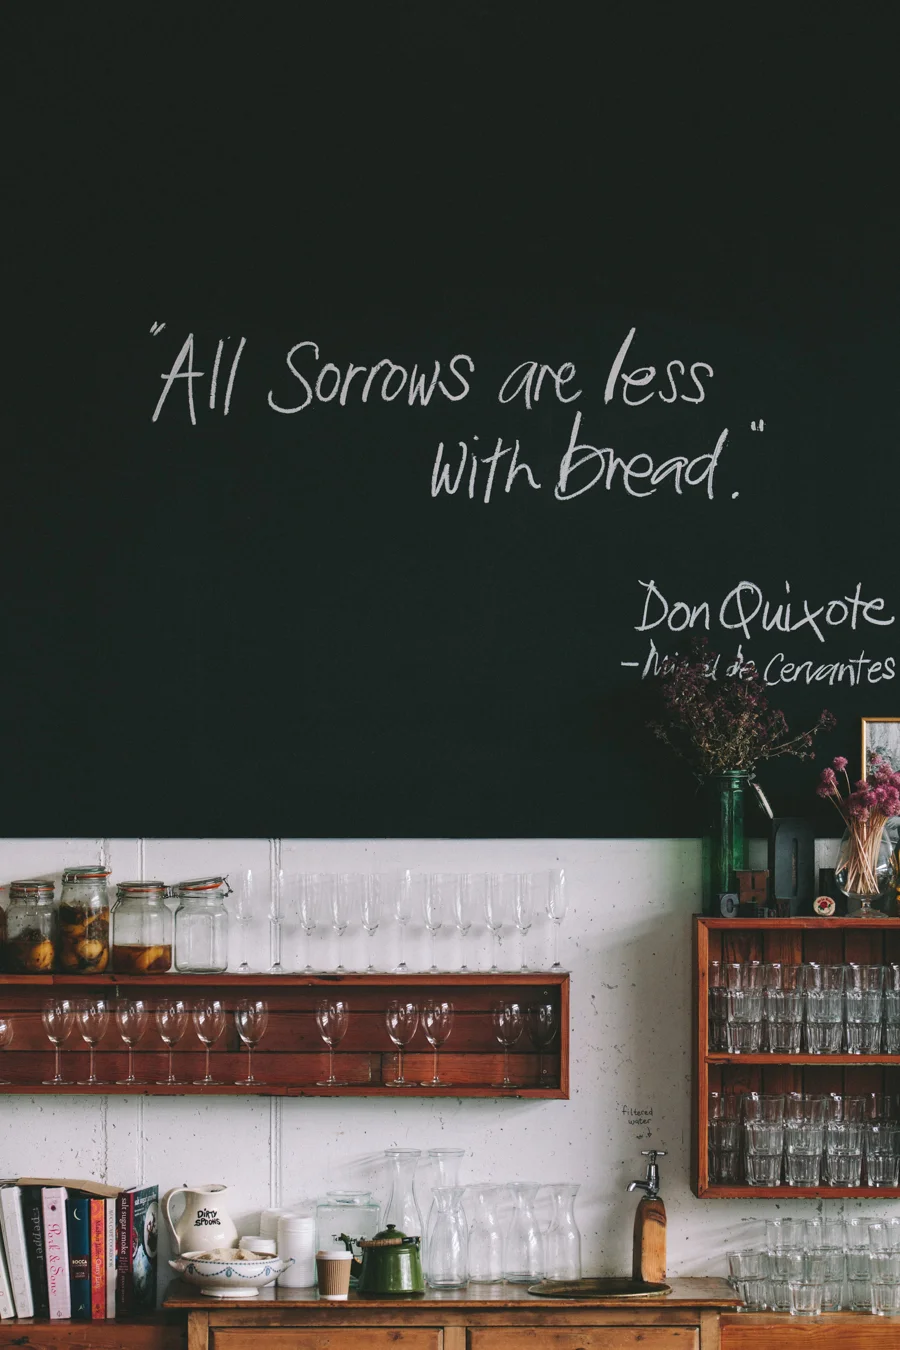 "All Sorrows are less
with bread."
Don Quixote
- Miguel de Cervantes
filtered
water
DIRTY
SPOONS
pepper
Pork & Sons
BOCCA
salt sugar smoke